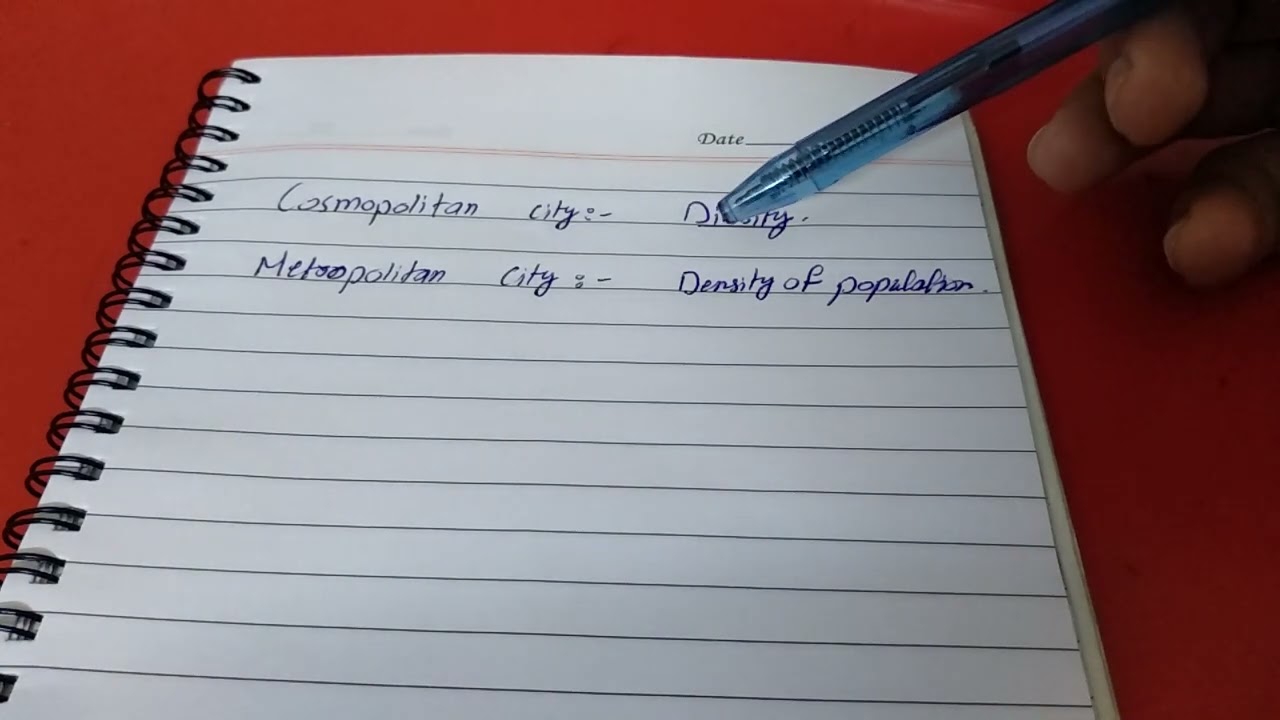 Date
Cosmopolitan city:-
Metropolitan City :- Density of population.